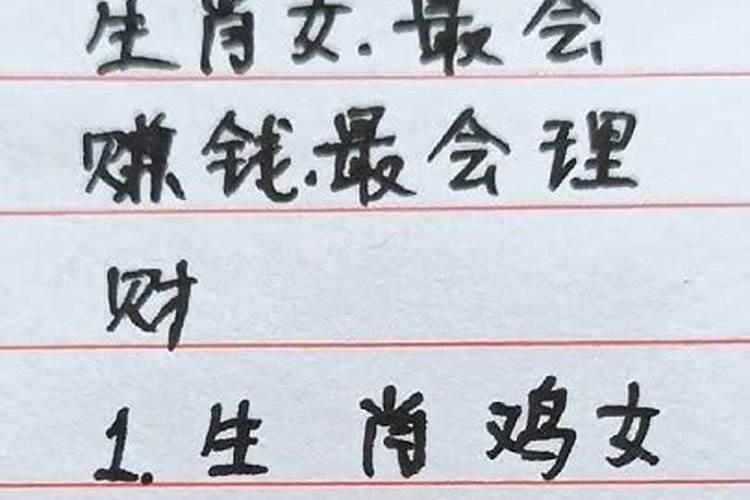 生肖女.最会
赚钱.最会理
财
1.生肖鸡女